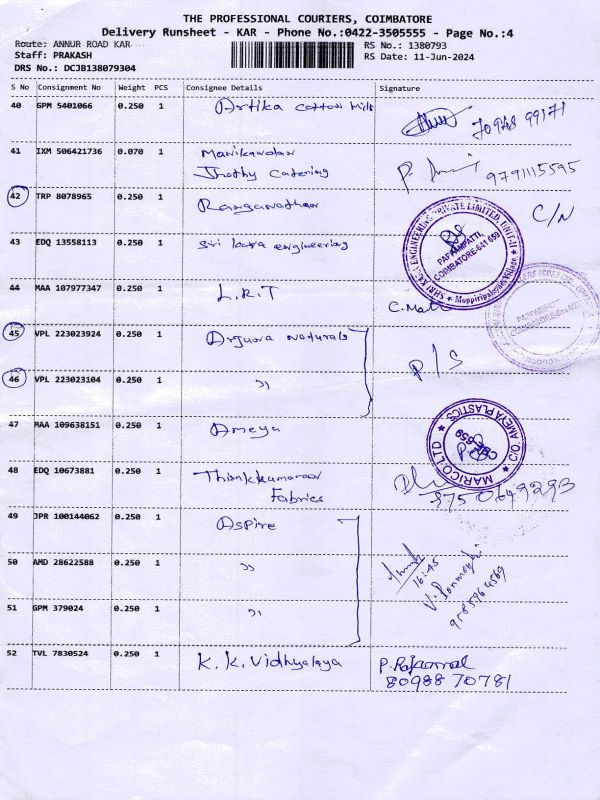 THE PROFESSIONAL COURIERS, COIMBATORE
Delivery Runsheet - KAR - Phone No.:0422-3505555 - Page No.:4
Route: ANNUR ROAD KAR
RS No.: 1380793
Staff: PRAKASH
RS Date: 11-Jun-2024
DRS No.: DCJB138079304
S No Consignment No Weight PCS Consignee Details Signature
40 GPM 5401066 0.250 1 Artika Cotton Mills 70948 99171
41 IXM 506421736 0.070 1 Manikandan
Jhothy Catering 9791115595
42 TRP 8078965 0.250 1 Ranganathan C/N
43 EDQ 13558113 0.250 1 Sri kara engineering
PAPPAMPATTI,
COIMBATORE-641 659
44 MAA 107977347 0.250 1 L.R.T
45 VPL 223023924 0.250 1 Arjuna Naturals P/S
46 VPL 223023104 0.250 1 "
47 MAA 109638151 0.250 1 Ameya
MARICO LTD C/O. AMEYA PLASTICS
CBE-659
48 EDQ 10673881 0.250 1 Thirukkumaran
Fabrics 8750649293
49 JPR 100144062 0.250 1 Aspire
50 AMD 28622588 0.250 1 " 16:45
51 GPM 379024 0.250 1 "
52 TVL 7830524 0.250 1 K.K.Vidhyalaya P.Rajammal
80988 70781